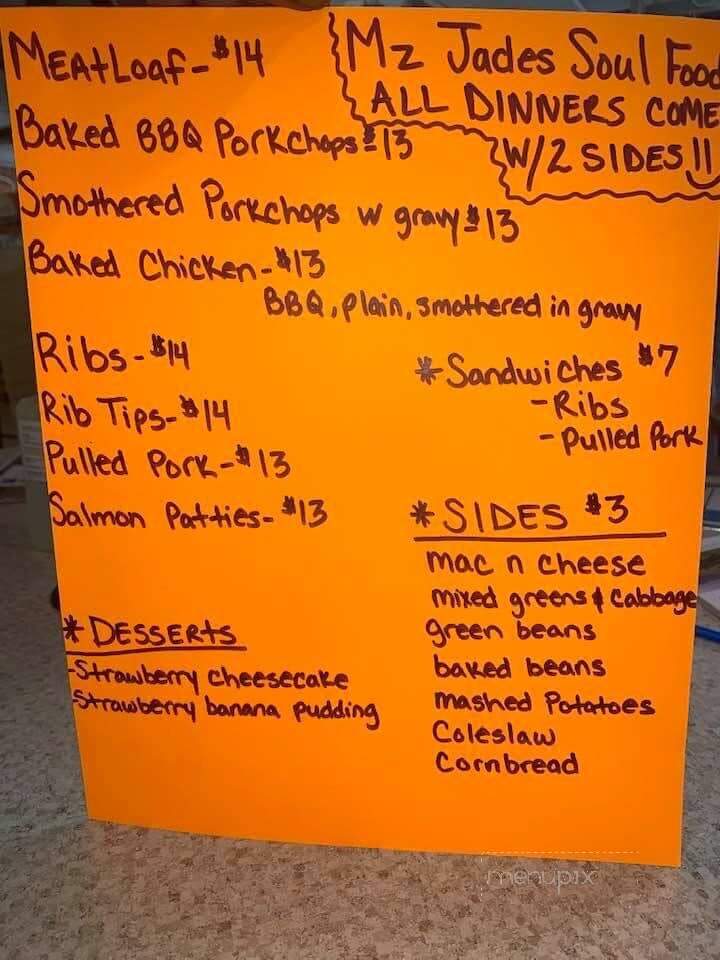 Mz Jades Soul Food
ALL DINNERS COME
W/2 SIDES!!
MEAtLoaf-$14
Baked BBQ Porkchops-$13
Smothered Porkchops w gravy-$13
Baked Chicken-$13
BBQ, plain, smothered in gravy
Ribs-$14
Rib Tips-$14
Pulled Pork-$13
Salmon Patties-$13
*Sandwiches $7
-Ribs
-Pulled Pork
*SIDES $3
mac n cheese
mixed greens & Cabbage
green beans
baked beans
mashed Potatoes
Coleslaw
Cornbread
*DESSERTS
-Strawberry cheesecake
-Strawberry banana pudding
menupix